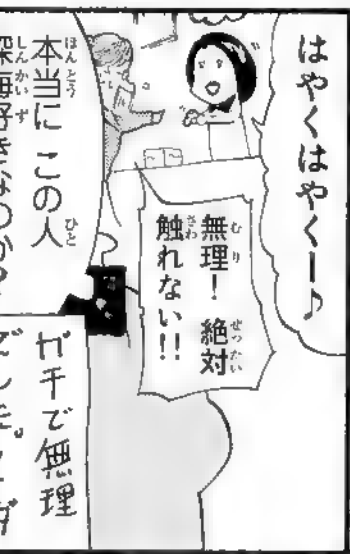 はやくはやくー♪
無理！ 絶対
触れない!!
本当に この人
深海好きなのか？
ガチで無理
でした。